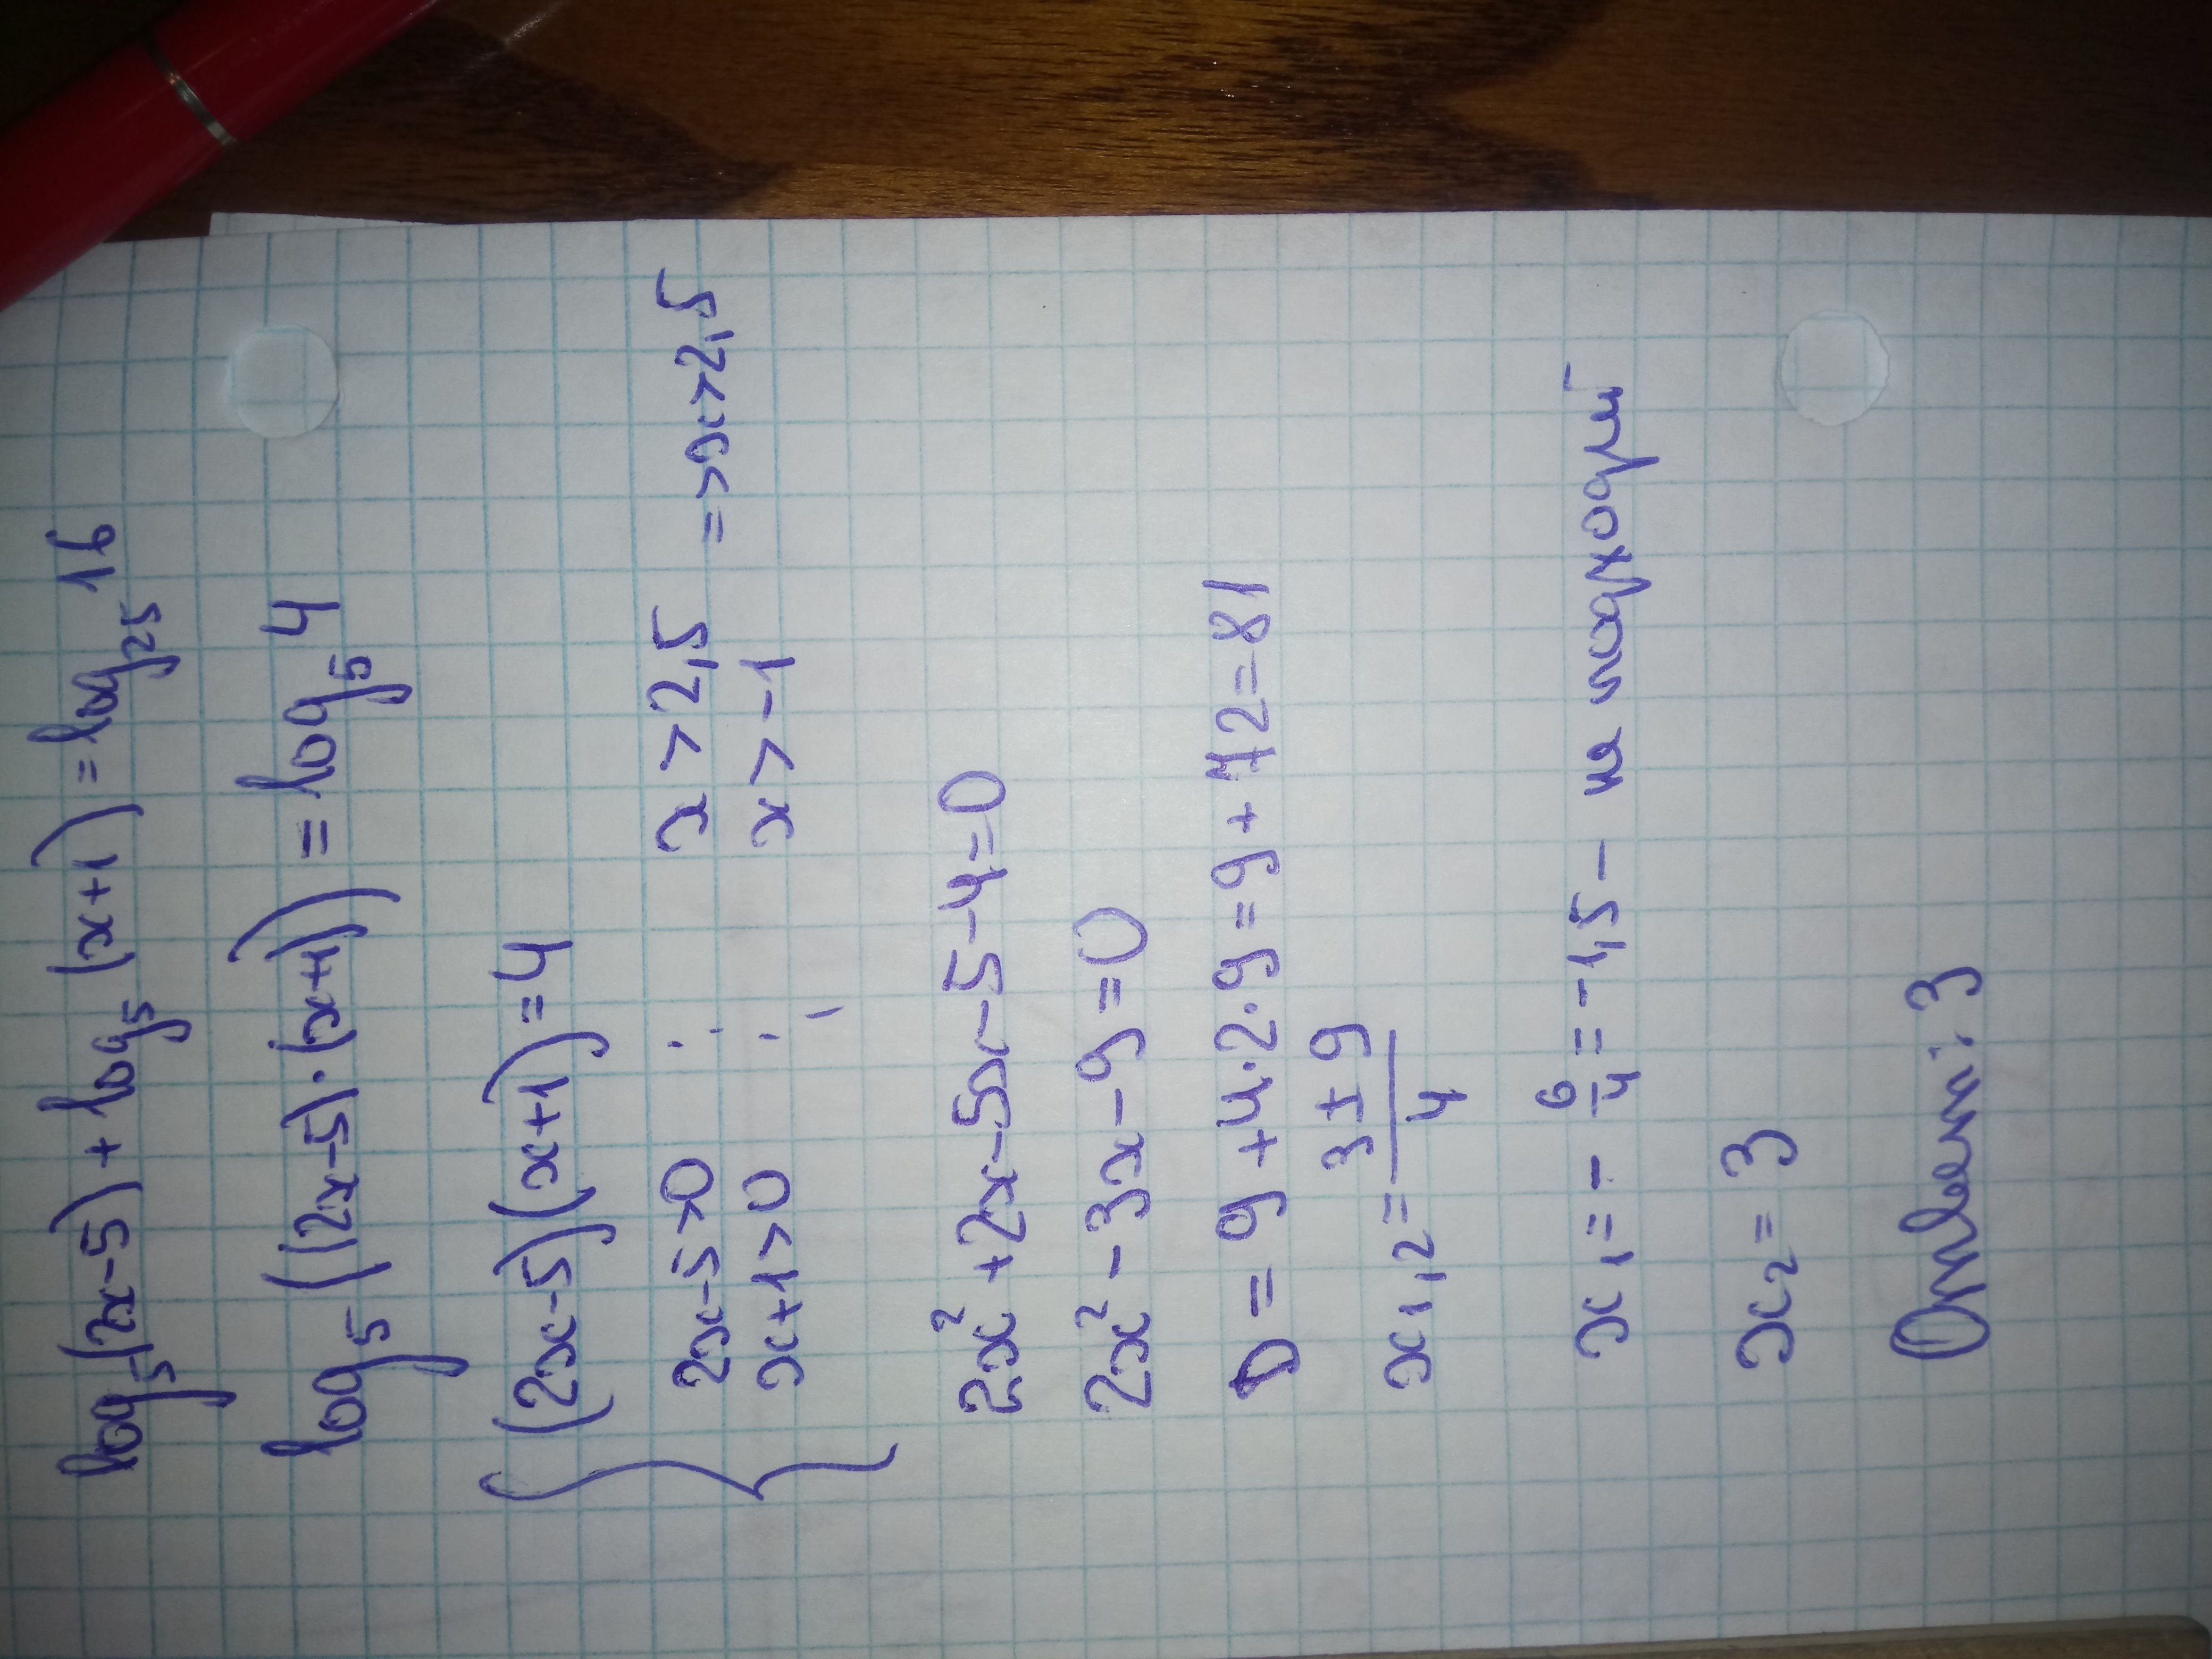 log₅(2x-5)+log₅(x+1)=log₂₅16
log₅((2x-5)·(x+1))=log₅4
(2x-5)(x+1)=4
2x-5>0 ; x>2,5 =>x>2,5
x+1>0 ; x>-1
2x²+2x-5x-5-4=0
2x²-3x-9=0
D=9+4·2·9=9+72=81
x₁,₂=3±9/4
x₁=-6/4=-1,5- не подходит
x₂=3
Ответ: 3